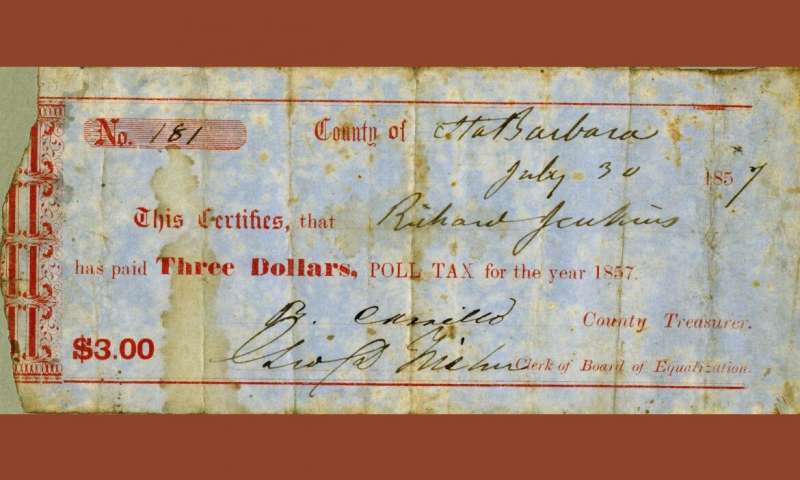 No. 181 County of Sta Barbara
July 30 1857
This Certifies, that Richard Jenkins
has paid Three Dollars, POLL TAX for the year 1857.
R. Carrillo County Treasurer.
$3.00
Geo D Clerk of Board of Equalization.